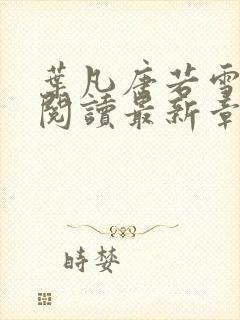 葉凡唐若雪
閱讀最新章
時婪